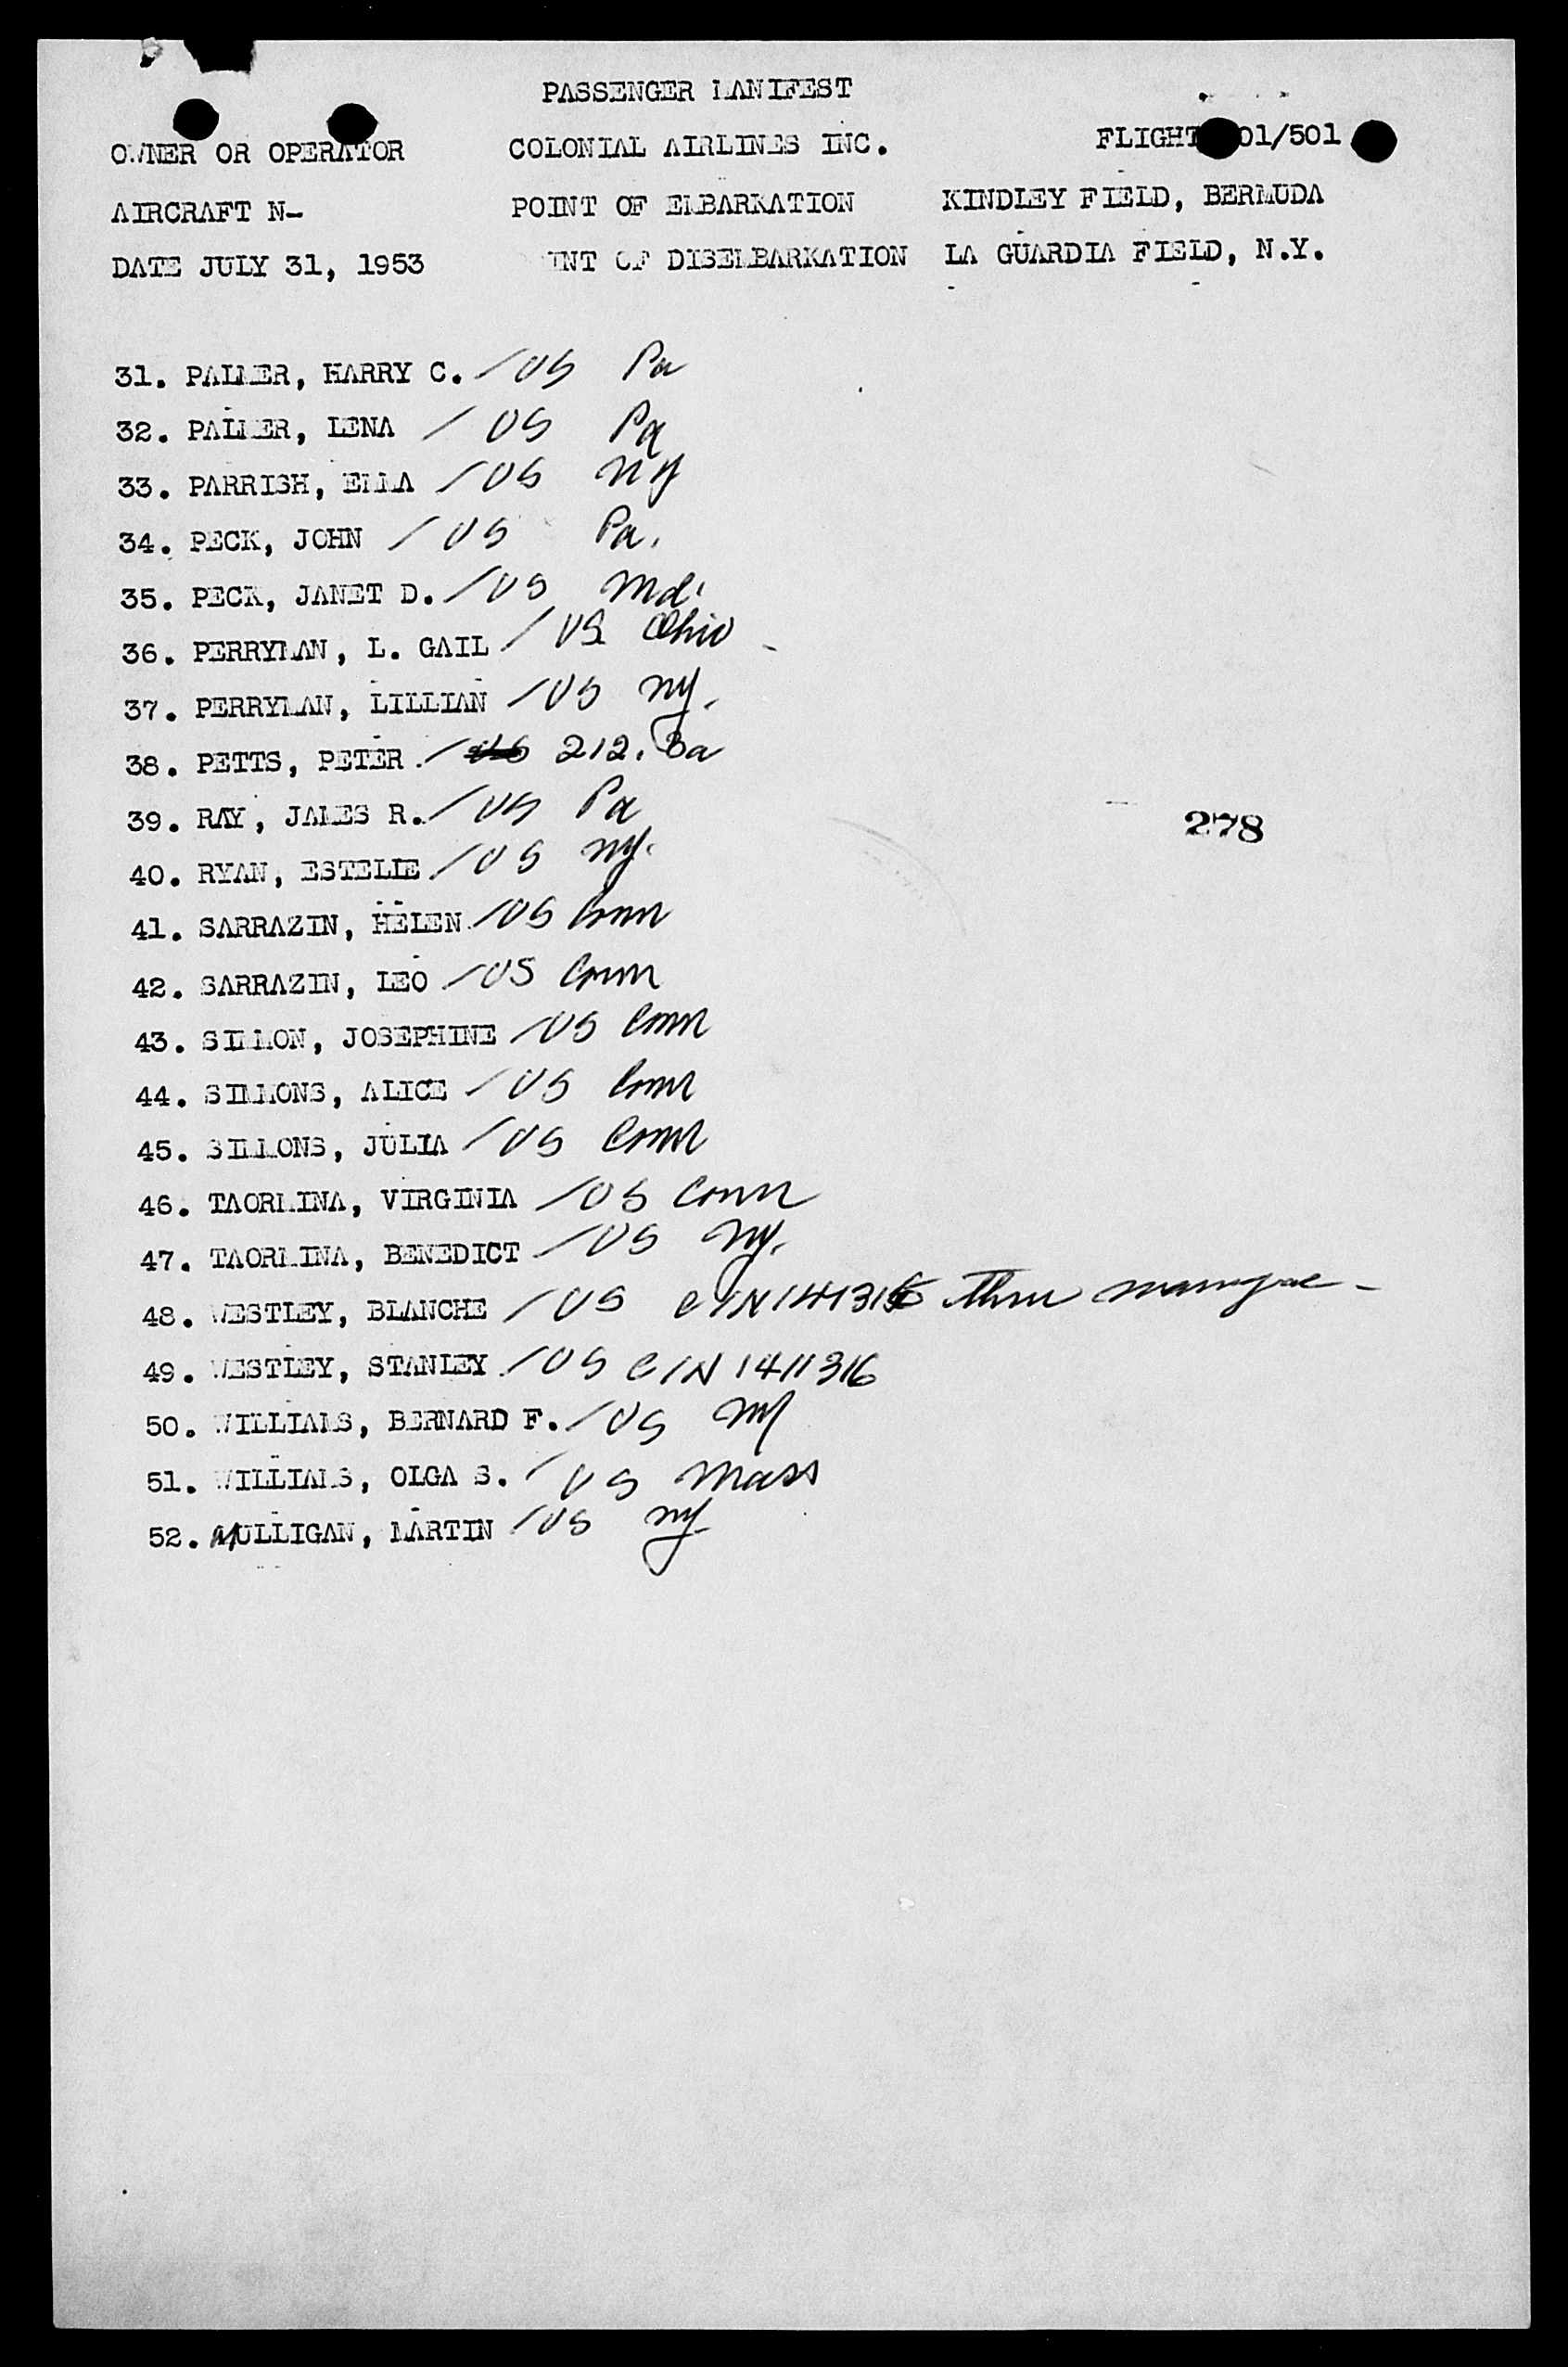 PASSENGER MANIFEST
OWNER OR OPERATOR COLONIAL AIRLINES INC. FLIGHT 01/501
AIRCRAFT N- POINT OF EMBARKATION KINDLEY FIELD, BERMUDA
DATE JULY 31, 1953 INT OF DISEMBARKATION LA GUARDIA FIELD, N.Y.
31. PALMER, HARRY C. / US Pa
32. PALMER, LENA / US Pa
33. PARRISH, EMMA / US NY
34. PECK, JOHN / US Pa.
35. PECK, JANET D. / US Md.
36. PERRYMAN, L. GAIL / US Ohio
37. PERRYMAN, LILLIAN / US NY.
38. PETTS, PETER / 212. 3a
39. RAY, JAMES R. / US Pa
278
40. RYAN, ESTELLE / US NY.
41. SARRAZIN, HELEN / US Conn
42. SARRAZIN, LEO / US Conn
43. SIMMON, JOSEPHINE / US Conn
44. SIMMONS, ALICE / US Conn
45. SIMMONS, JULIA / US Conn
46. TAORMINA, VIRGINIA / US Conn
47. TAORMINA, BENEDICT / US NY.
48. WESTLEY, BLANCHE / US C/N thru marriage -
49. WESTLEY, STANLEY / US C/N 1411316
50. WILLIAMS, BERNARD F. / US NY
51. WILLIAMS, OLGA S. / US Mass
52. MULLIGAN, MARTIN / US NY